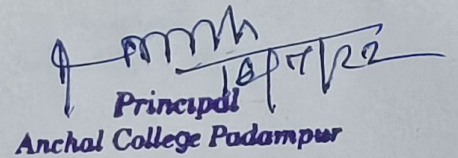 18/7/22
Principal
Anchal College Padampur